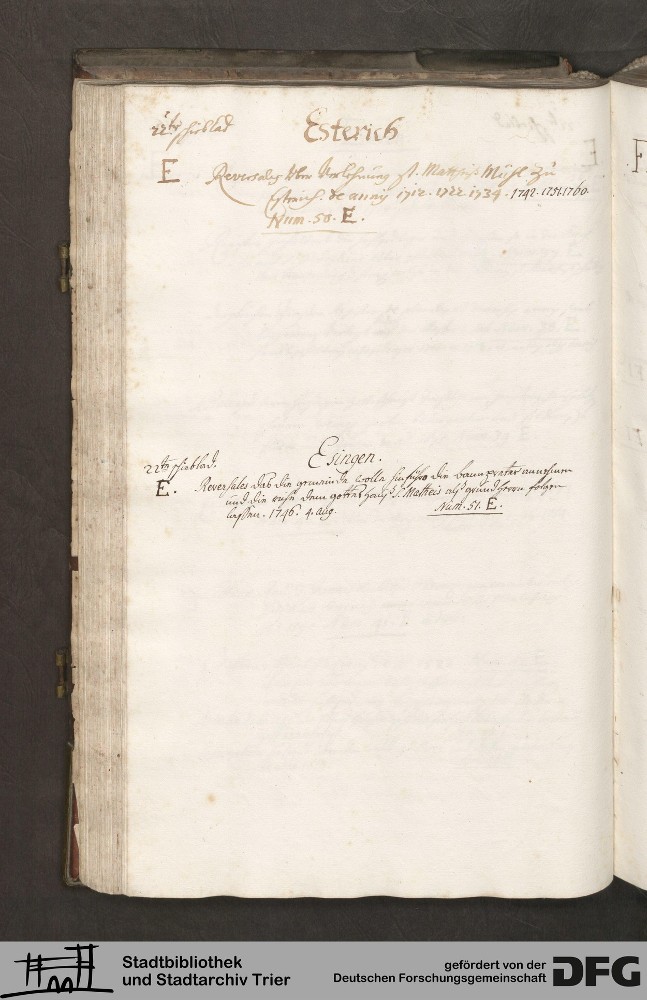 22te schieblad
Esterich
E Reversales über Verlehnung st. Matheis Mühl zu
Estrich. de annis 1712. 1722. 1734. 1742. 1751. 1760.
Num. 50. E.
22te schieblad.
Esingen.
E. Reversales das die gemeinde wolle hinführo die annehmen
und die dem gottes haus S. Matheis als grundherrn folgen
lassen. 1746. 4. aug. Num. 51. E.
Stadtbibliothek
und Stadtarchiv Trier
gefördert von der
Deutschen Forschungsgemeinschaft
DFG